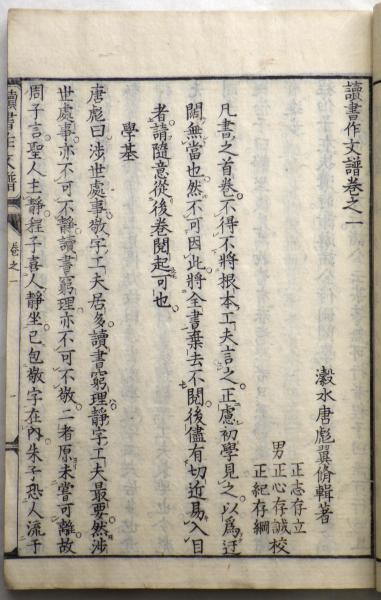 讀書作文譜卷之一
瀫水唐彪翼脩輯著
正志存立
男正心存誠校
正紀存綱
凡書之首卷不得不將根本工夫言之正慮初學見之以爲迂
闊無當也然不可因此將全書棄去不閱後儘有切近易入目
者請隨意從後卷閱起可也
學基
唐彪曰涉世處事敬字工夫居多讀書窮理靜字工夫最要然涉
世處事亦不可不靜讀書窮理亦不可不敬二者原未嘗可離故
周子言聖人主靜程子喜人靜坐已包敬字在內朱子恐人流于
讀書作文譜
卷之一
一